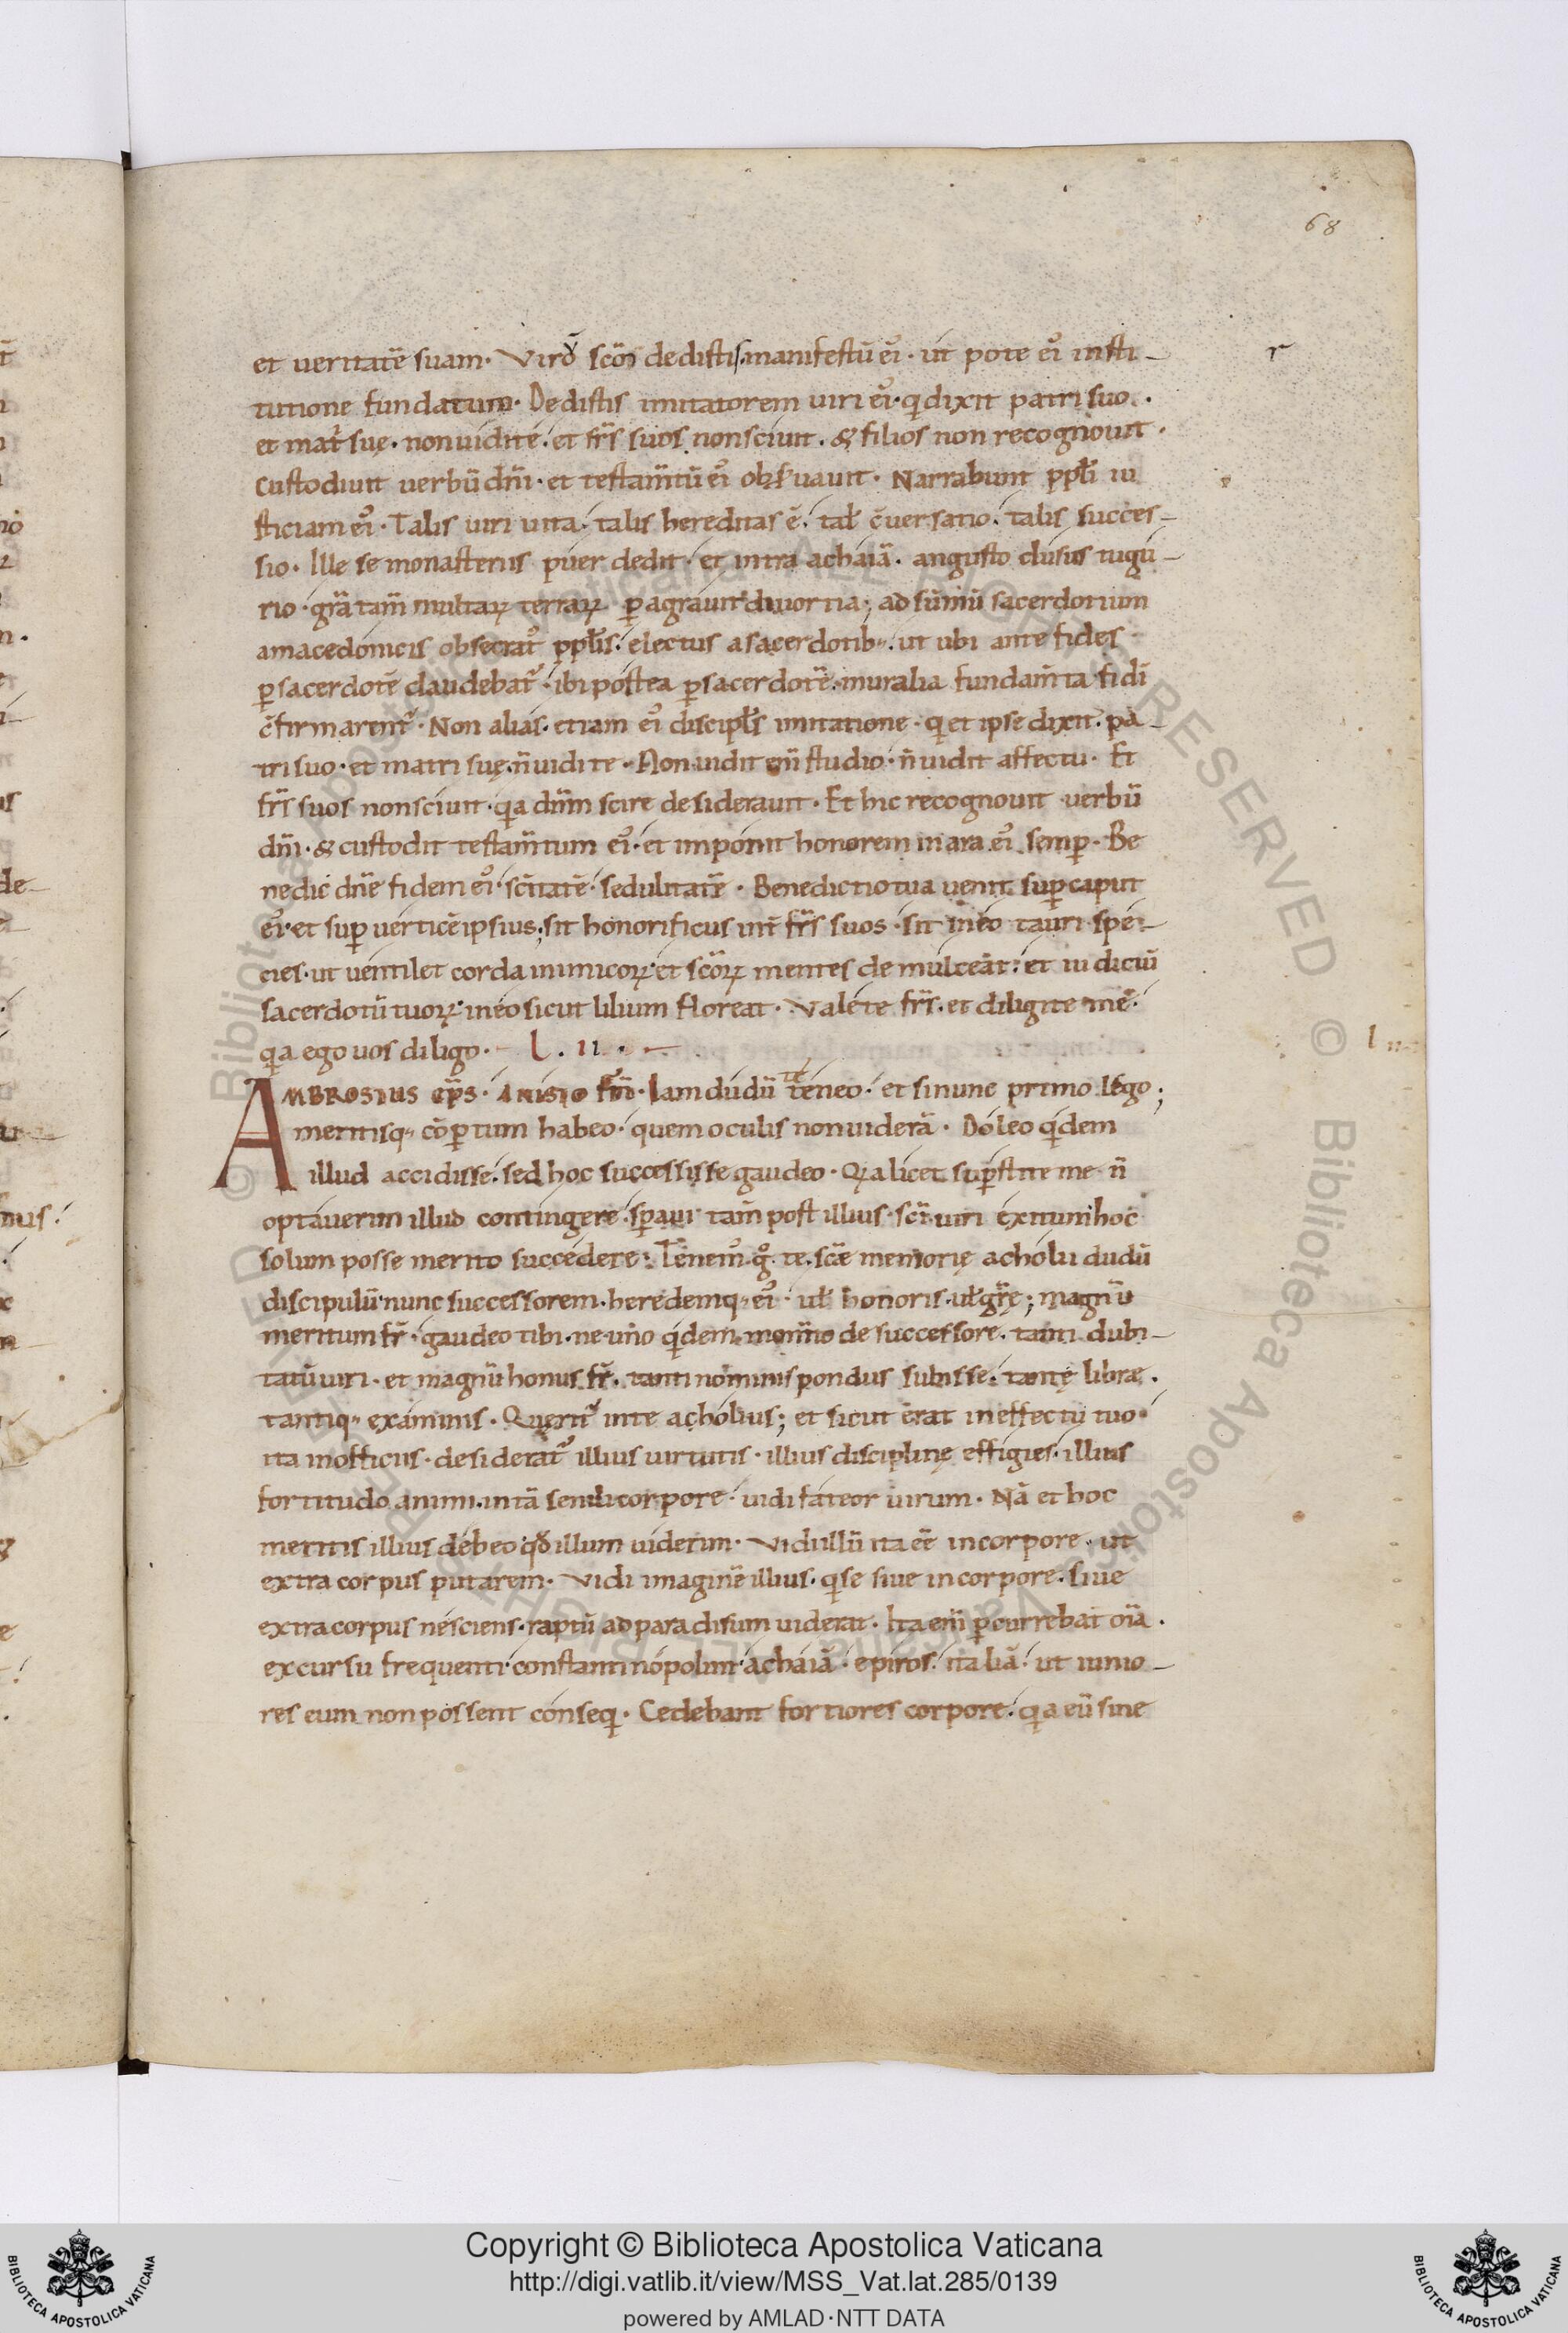 68
et ueritatē suam. Viro scō dedistis manifestū ei᾽. ut pote ei᾽ insti-
tutione fundatum. Dedistis imitatorem uiri ei᾽. q dixit patri suo.
et mat̄ suę. non uidi te. et fr̄s suos non sciuit. & filios non recognouit.
custodiuit uerbū dn̄i. et testam̄tū ei᾽ obseruauit. Narrabunt ppl̄i iu
sticiam ei᾽. Talis uiri uita. talis hereditas ē. tal̄ c̄uersatio. talis succes-
sio. Ille se monasteriis puer dedit. et intra achaiā. angusto clusus tugu-
rio. gr̄a tam̄ multaꝝ terraꝝ ꝑagrauit diuortia; ad sūmū sacerdotium
a macedonicis obsecrat᾽ ppl̄is. electus a sacerdotib;. ut ubi ante fides
ꝑ sacerdotē claudebat᾽. ibi postea ꝑ sacerdotē. muralia fundam̄ta fidi
c̄firmarent᾽. Non alias. etiam ei᾽ discipl̄s imitatione. q et ipse dixit. pa-
tri suo. et matri suę. n̄ uidi te. Non uidit eni᾽ studio. n̄ uidit affectu. Et
fr̄s suos non sciuit. qa dn̄m scire desiderauit. Et hic recognouit uerbū
dn̄i. & custodit testam̄tum ei᾽. et imponit honorem in ara ei᾽ semꝑ. Be
nedic dn̄e fidem ei᾽. sc̄itatē. sedulitatē. Benedictio tua uenit suꝑ caput
ei᾽. et suꝑ uerticē ipsius; sit honorificus int̄ fr̄s suos. sit in eo tauri spe-
cies. ut uentilet corda inimicoꝝ. et sc̄oꝝ mentes demulceat. et iudiciū
sacerdotū tuoꝝ in eo sicut lilium floreat. Valete fr̄s. et diligite me.
qa ego uos diligo. l. ii.
AMBROSIUS ep̄s. ANISIO fr̄i. Iam dudū te teneo. et si nunc primo lego;
meritisq; cōꝑtum habeo. quem oculis non uiderā. Doleo qdem
illud accidisse. sed hoc successisse gaudeo. Qa licet suꝑstite me n̄
optauerim illud contingere. sꝑaui tam̄ post illius sc̄i uiri exitum hoc
solum posse merito succedere. Tenem᾽ gͦ te. sc̄æ memorię acholii dudū
discipulū. nunc successorem. heredemq; ei᾽. ul̄ honoris. ul̄ gr̄ę; magnū
meritum fr̄. gaudeo tibi. ne uno qdem mom̄to de successore. tanti dubi-
tatū uiri. et magnū honus fr̄. tanti nominis pondus subisse. tantę libræ.
tantiq; examinis. Querit᾽ in te acholius; et sicut erat in effectu tuo.
ita in officiis. desiderat᾽ illius uirtutis. illius disciplinę effigies. illius
fortitudo animi. in tā senili corpore. uidi fateor uirum. Nā et hoc
meritis illius debeo qd̄ illum uiderim. Vidi illū ita eē in corpore. ut
extra corpus putarem. Vidi imaginē illius. q se siue in corpore. siue
extra corpus nesciens. raptū ad paradisum uiderat. Ita eni᾽ ꝑcurrebat oīa.
ex cursu frequenti constantinopolim. achaiā. epiros. italiā. ut iunio-
res eum non possent conseq. Cedebant fortiores corpore. qa eū sine
r
Copyright © Biblioteca Apostolica Vaticana
http://digi.vatlib.it/view/MSS_Vat.lat.285/0139
powered by AMLAD·NTT DATA
BIBLIOTECA APOSTOLICA VATICANA
BIBLIOTECA APOSTOLICA VATICANA